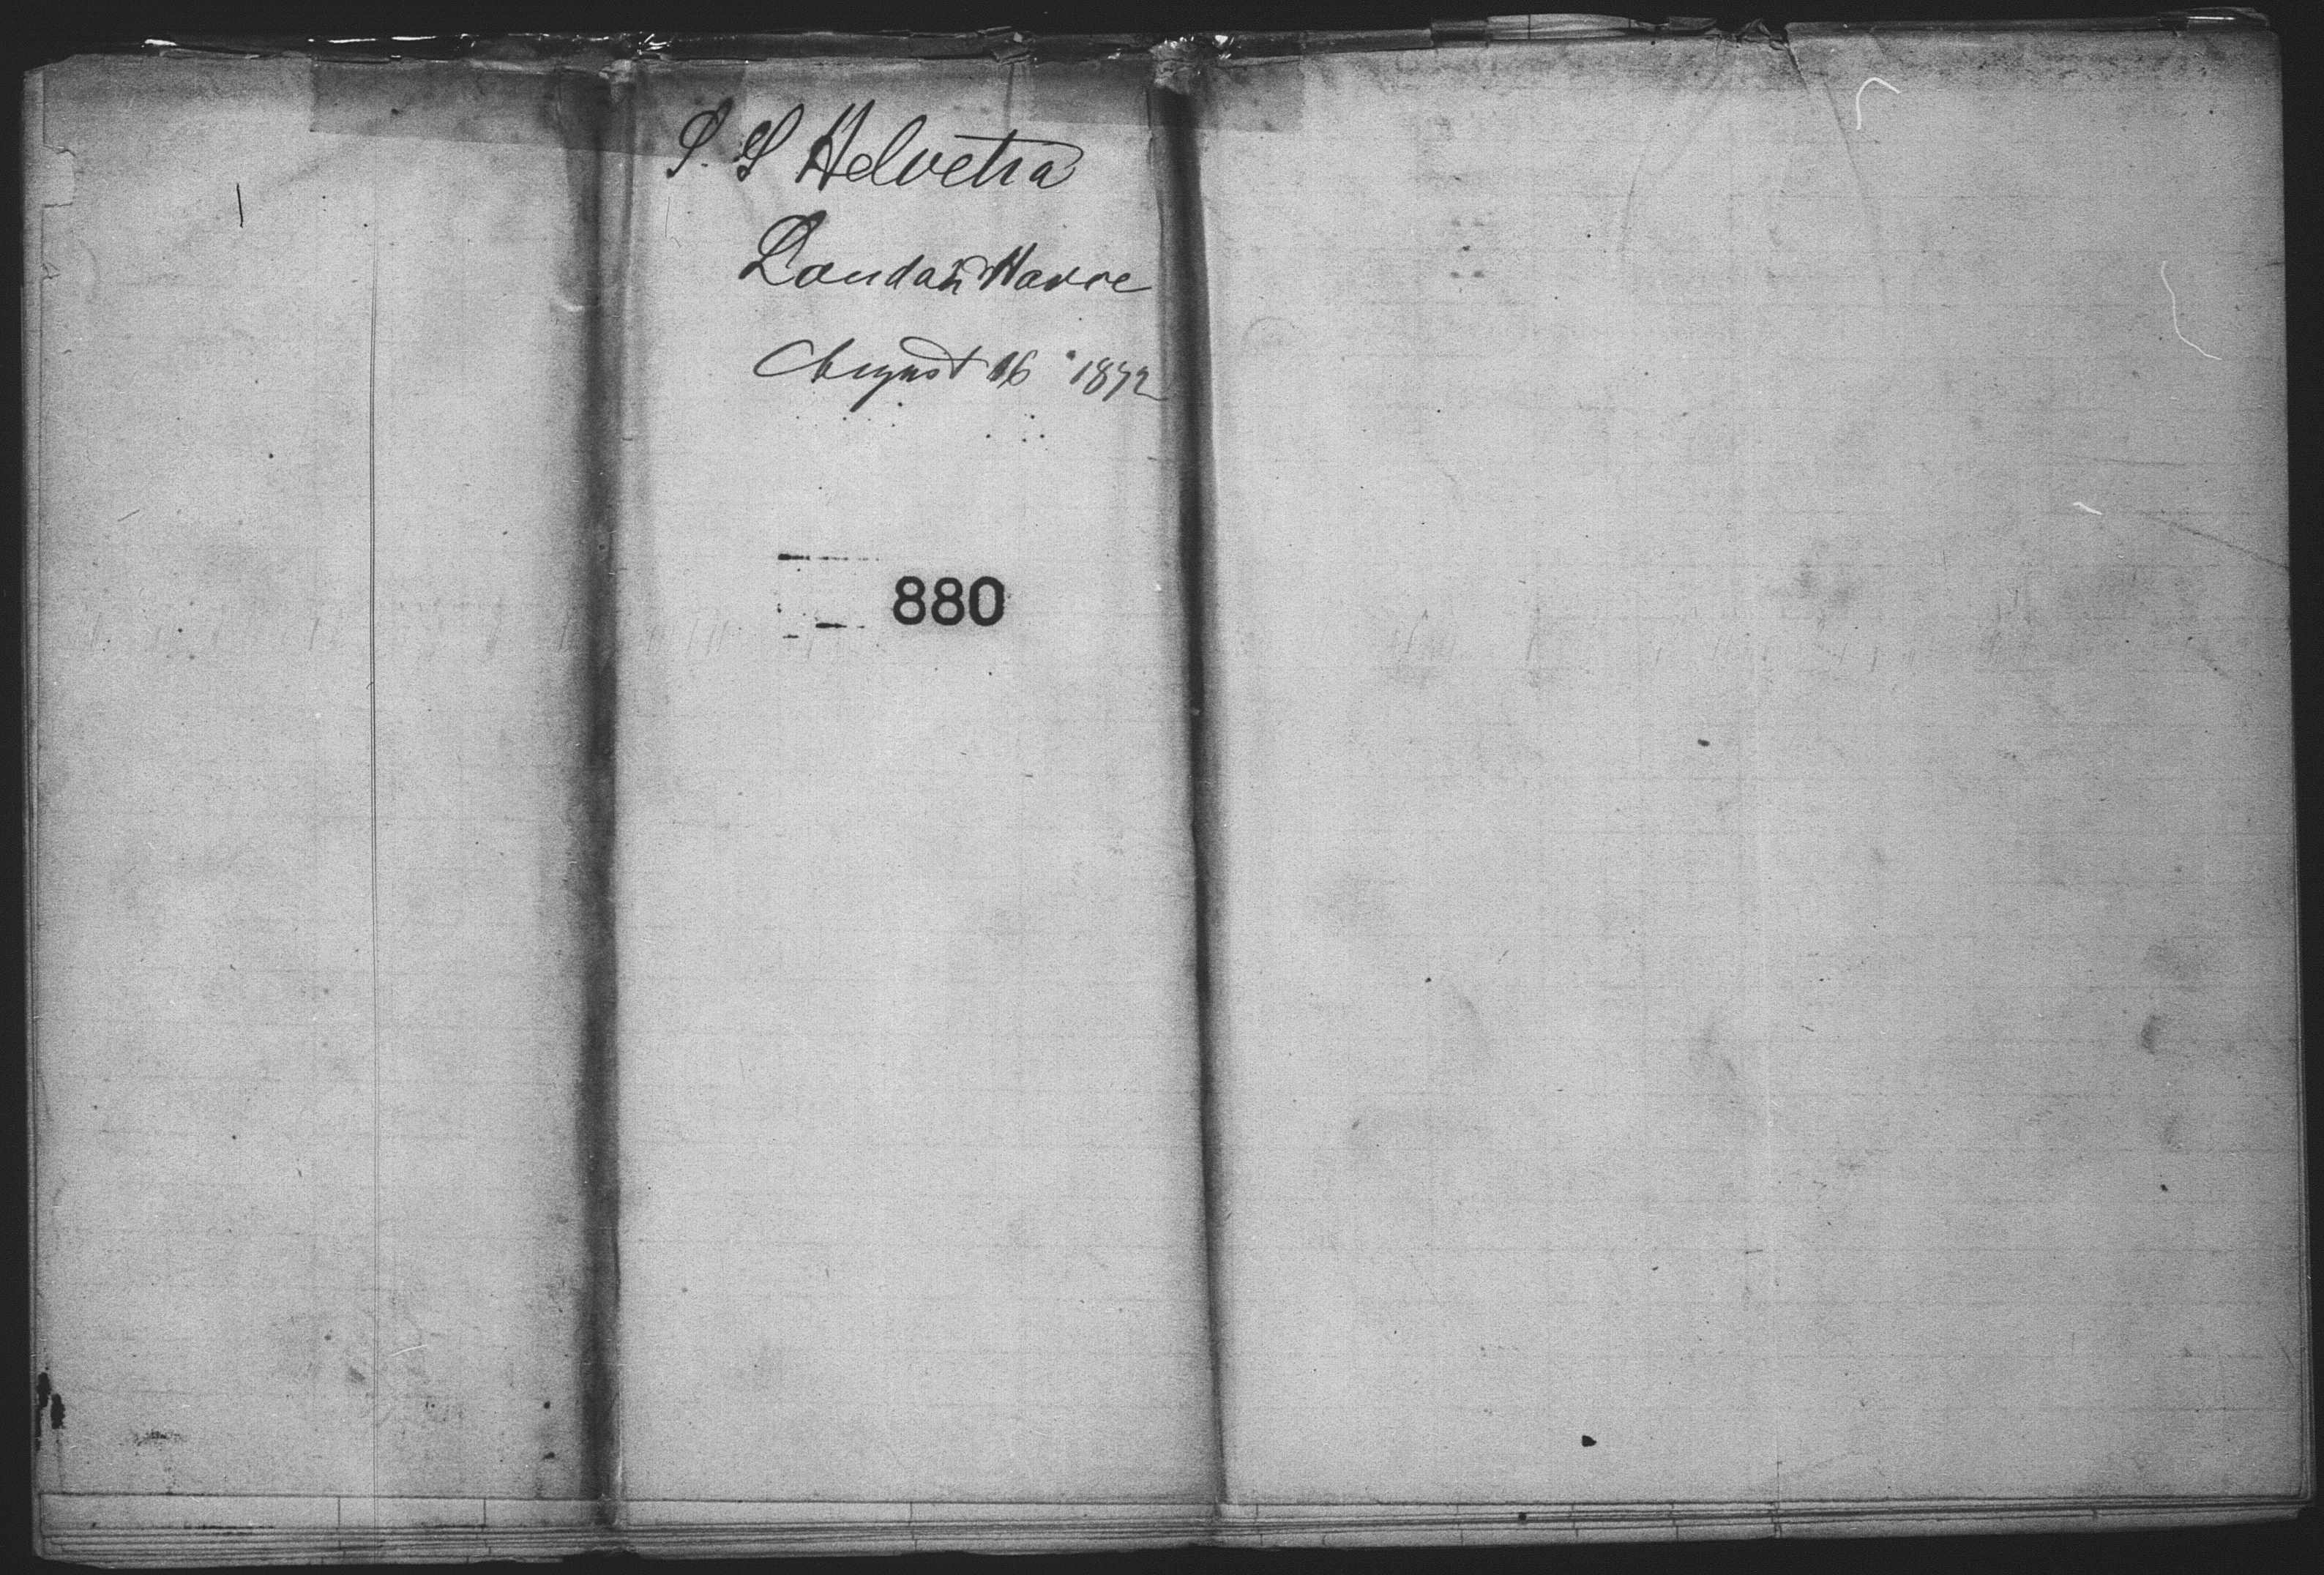 S. S Helvetia
London Havre
August 16 1872
880